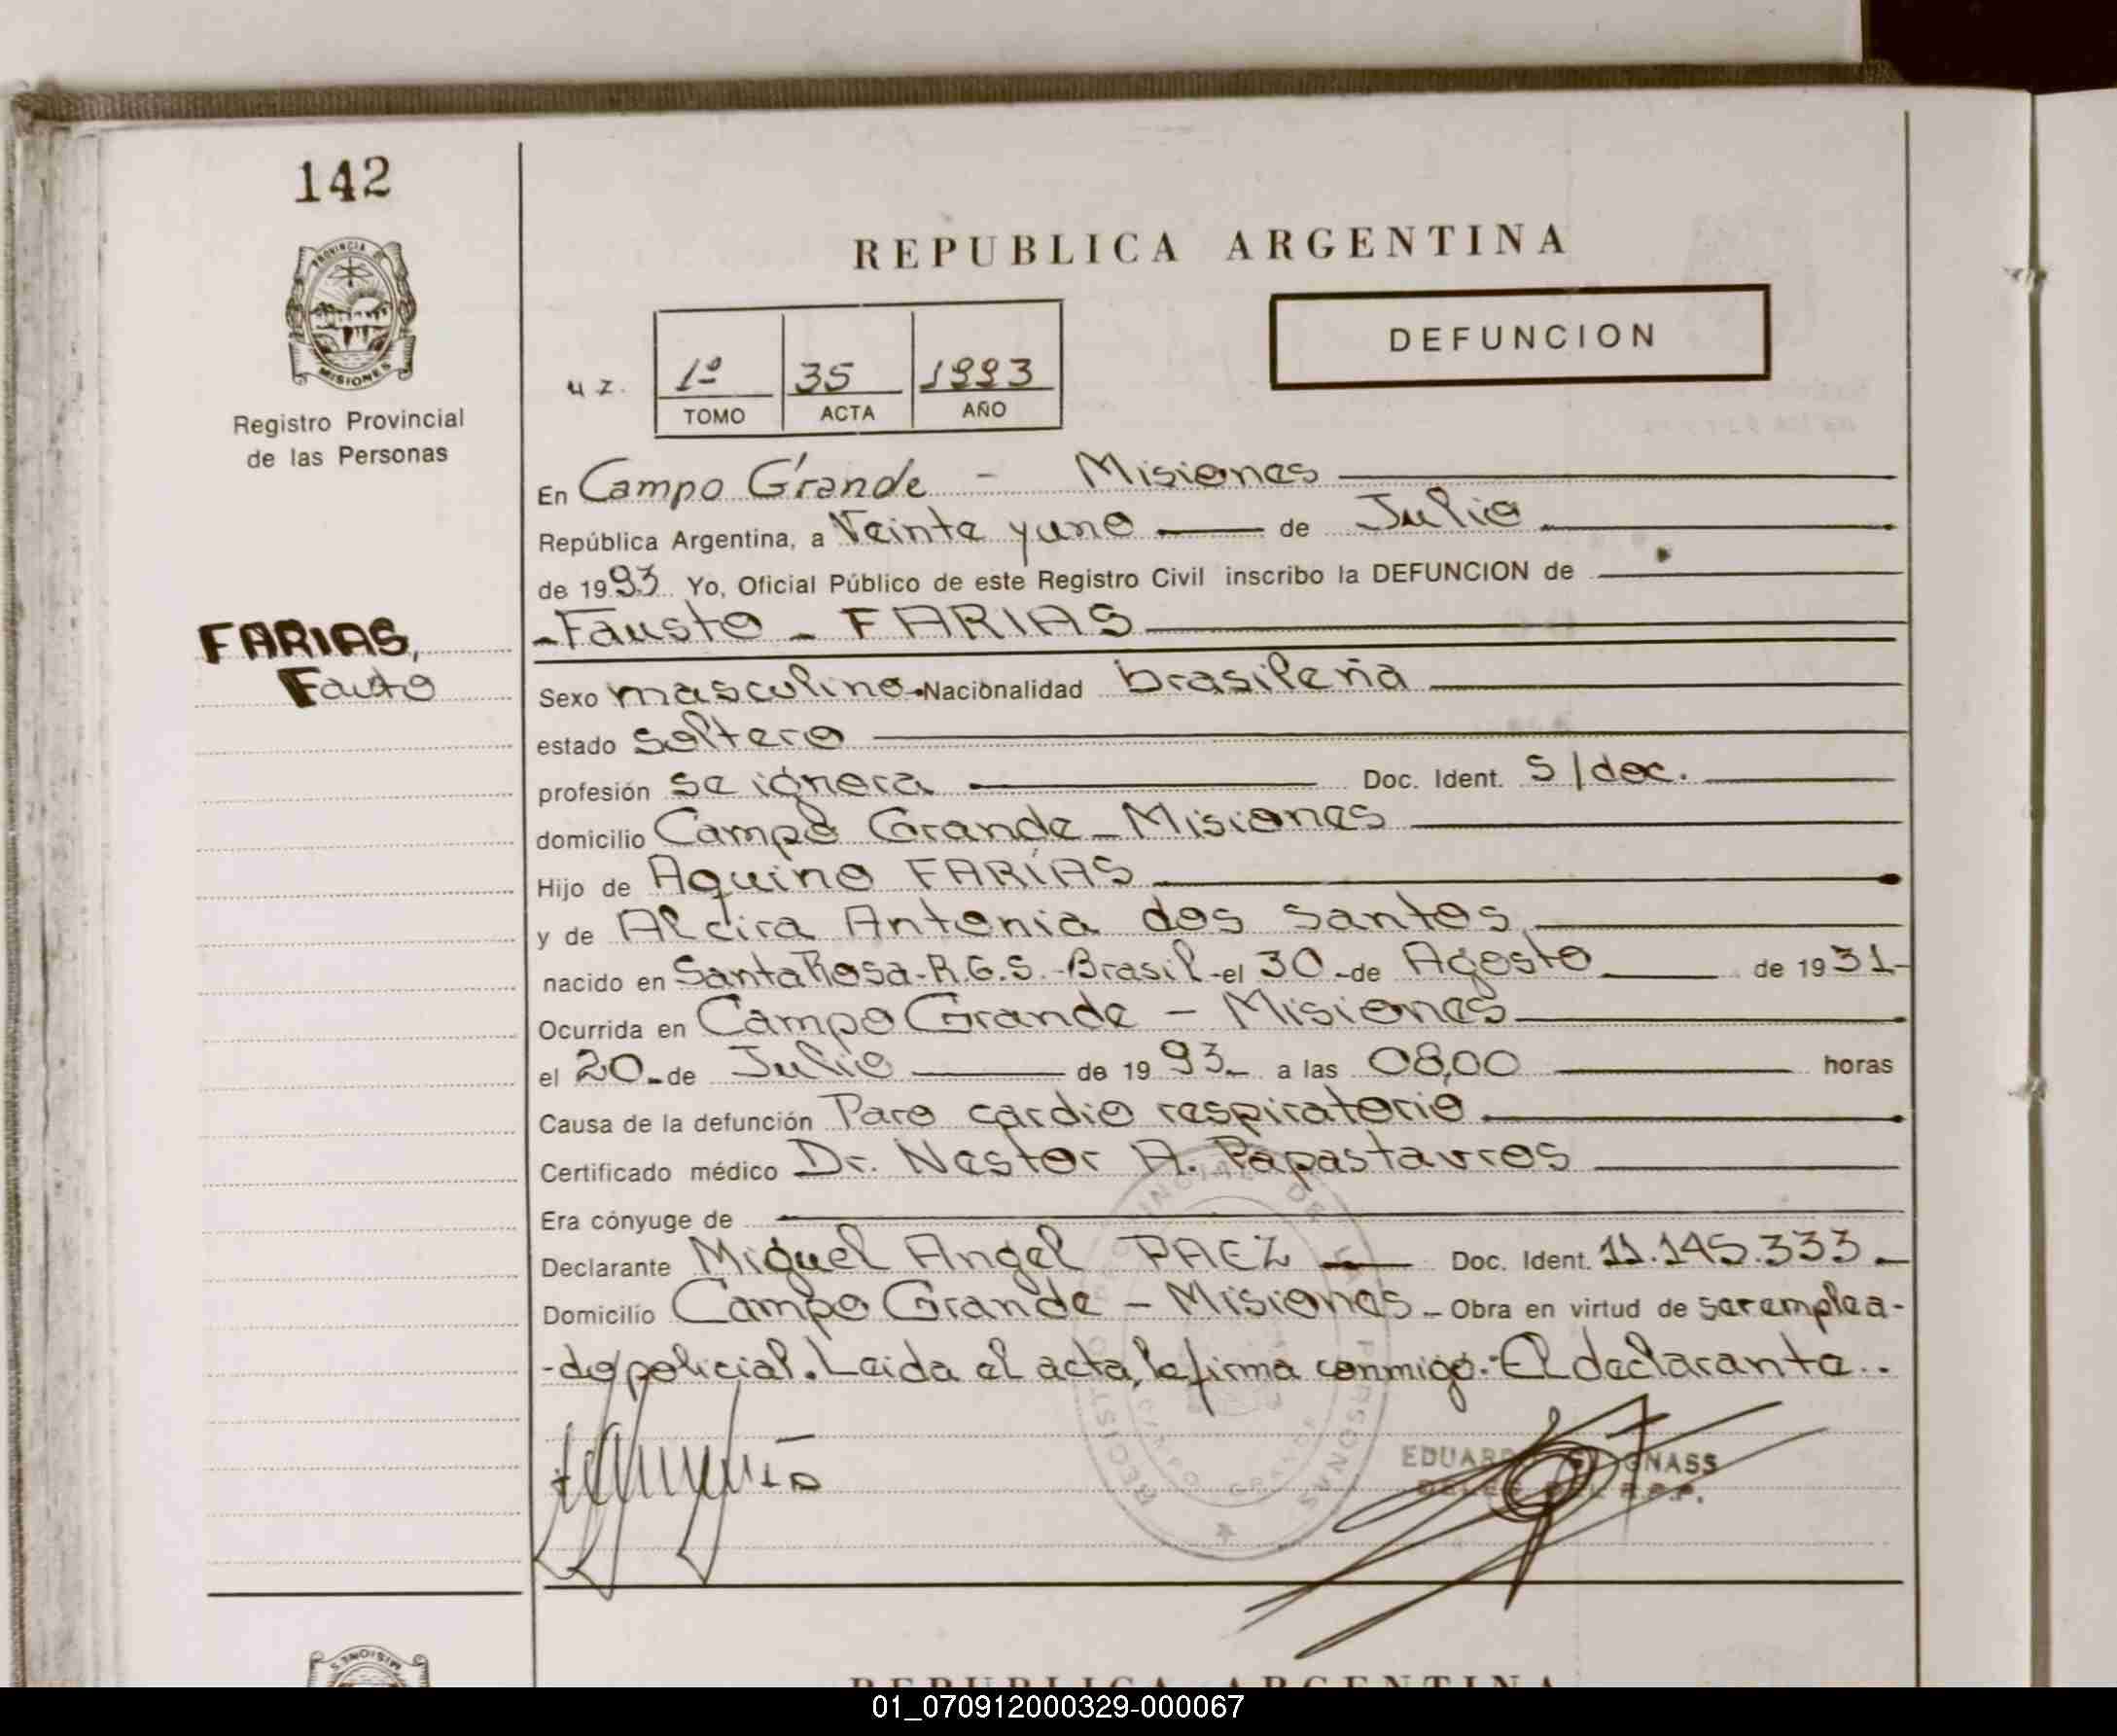 142
PROVINCIA DE
MISIONES
Registro Provincial
de las Personas
FARIAS,
Fausto
REPUBLICA ARGENTINA
DEFUNCION
1º 35 1993
TOMO ACTA AÑO
En Campo Grande - Misiones
República Argentina, a Veinte y uno de Julio
de 1993. Yo, Oficial Público de este Registro Civil inscribo la DEFUNCION de
-Fausto - FARIAS
Sexo masculino.-Nacionalidad brasileña
estado soltero
profesión se ignora Doc. Ident. S/doc.
domicilio Campo Grande - Misiones
Hijo de Aquino FARÍAS
y de Alcira Antonia dos Santos
nacido en Santa Rosa-R.G.S.-Brasil-el 30-de Agosto de 1931-
Ocurrida en Campo Grande - Misiones
el 20-de Julio de 1993- a las 08,00 horas
Causa de la defunción Paro cardio respiratorio
Certificado médico Dr. Nestor A. Papastavros
Era cónyuge de
Declarante Miguel Angel PAEZ Doc. Ident. 11.145.333-
Domicilio Campo Grande - Misiones - Obra en virtud de ser emplea-
-do policial. Leida el acta, la firma conmigo.- El declarante..
CAMPO GRANDE
DEL R.P.P.
MISIONES
REPUBLICA ARGENTINA
01_070912000329-000067